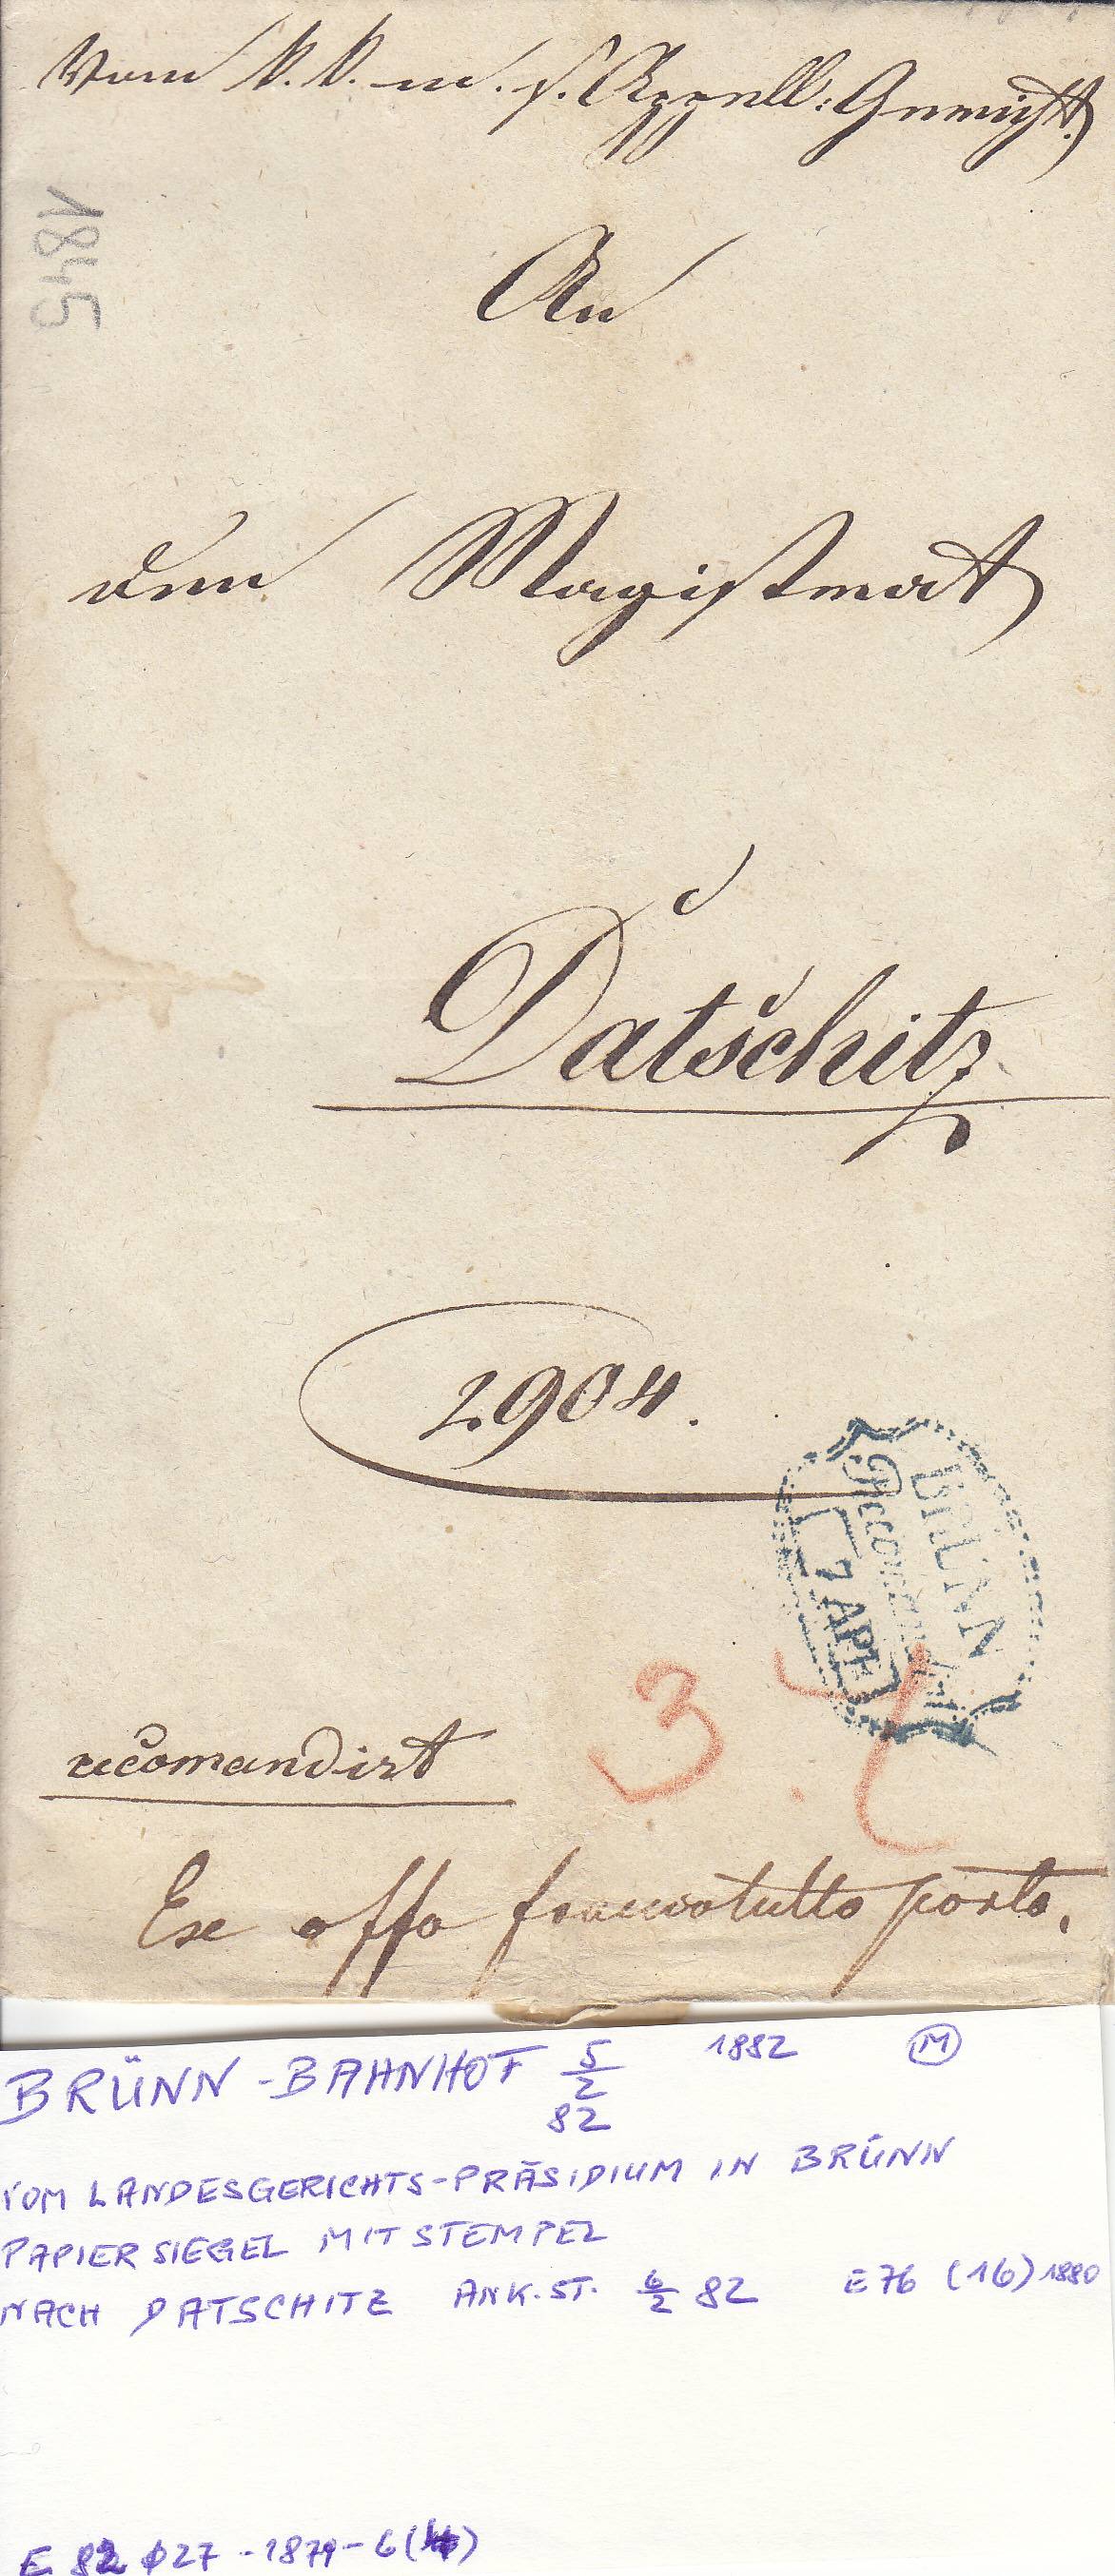 Vom k. k. m. s. Appell: Gericht.
1845
An
den Magistrat
Datschitz
2904.
BRÜNN
Recomandirt
7 APR
3
recomandirt
Ex offo francotutto porto.
BRÜNN-BAHNHOF 5/2 82 1882 M
VOM LANDESGERICHTS-PRÄSIDIUM IN BRÜNN
PAPIERSIEGEL MIT STEMPEL
NACH DATSCHITZ ANK.ST. 6/2 82 E76 (16) 1880
E 82 φ27 - 1879 - 6 (4)